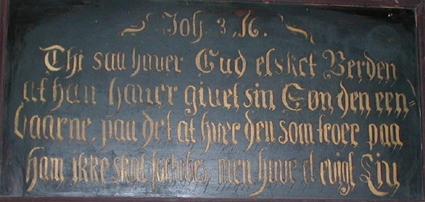 Joh 3, 16.
Thi saa haver Gud elsket Verden
at han haver givet sin Søn den een-
baarne paa det at hver den som troer paa
ham ikke skal fortabes, men have et evigt Liv